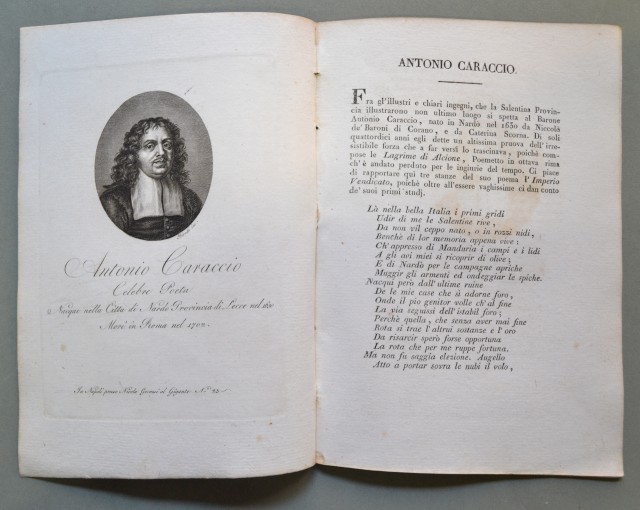 Antonio Caraccio
Celebre Poeta
Nacque nella Città di Nardò Provincia di Lecce nel 1630
Morì in Roma nel 1702.
In Napoli presso Nicola Gervasi al Gigante N.º 23
ANTONIO CARACCIO.
Fra gl'illustri e chiari ingegni, che la Salentina Provin-
cia illustrarono non ultimo luogo si spetta al Barone
Antonio Caraccio, nato in Nardò nel 1630 da Niccolà
de' Baroni di Corano, e da Caterina Scorna. Di soli
quattordici anni egli dette un altissima pruova dell'irre-
sistibile forza che a far versi lo trascinava, poichè com-
pose le Lagrime di Alcione, Poemetto in ottava rima
ch'è andato perduto per le ingiurie del tempo. Ci piace
di rapportare qui tre stanze del suo poema l'Imperio
Vendicato, poichè oltre all'essere vaghissime ci dan conto
de' suoi primi studj.
Là nella bella Italia i primi gridi
Udir di me le Salentine rive,
Da non vil ceppo nato, o in rozzi nidi,
Benchè di lor memoria appena vive;
Ch'appresso di Manduria i campi e i lidi
A gli avi miei si ricoprir di olive;
E di Nardò per le campagne apriche
Muggir gli armenti ed ondeggiar le spiche.
Nacqui però dall'ultime ruine
De le mie case chè si adorne foro,
Onde il pio genitor volle ch'al fine
La via seguissi dell'istabil foro;
Perchè quella, che senza aver mai fine
Rota si trae l'altrui sostanze e l'oro
Da risarcir sperò forse opportuna
La rota che per me ruppe fortuna.
Ma non fo saggia elezione. Augello
Atto a portar sovra le nubi il volo,